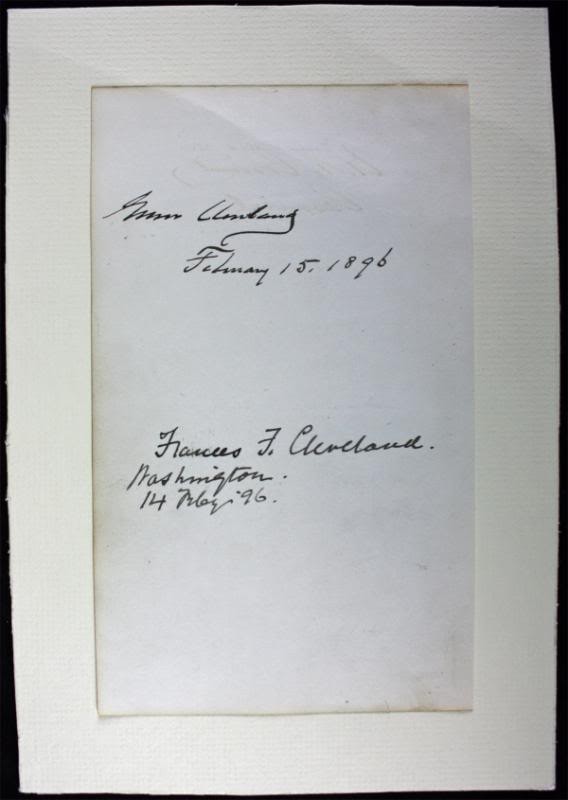 Grover Cleveland
February 15, 1896
Frances F. Cleveland.
Washington.
14 Feby '96.